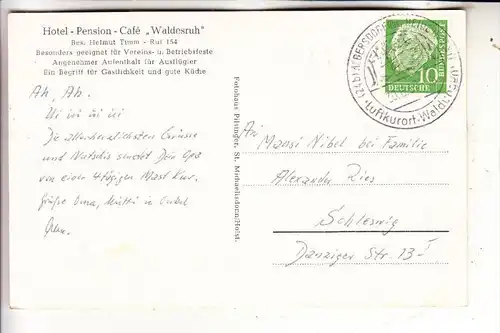 Hotel - Pension - Café „Waldesruh"
Bes. Helmut Timm - Ruf 154
Besonders geeignet für Vereins- u. Betriebsfeste
Angenehmer Aufenthalt für Ausflügler
Ein Begriff für Gastlichkeit und gute Küche
Ah, Ah.
Ui ii ii ii
Die allerherzlichsten Grüsse
und sendet Dir Opa
von einer 4 tägigen Mast Kur.
Grüße Oma, Mutti u Onkel
Fotohaus Pittinger, St. Michaelisdonn/Holst.
(24b) ALBERSDORF
Luftkurort · Wald
10
DEUTSCHE
BUNDESPOST
An
Mausi Nibel bei Familie
Alexander Ries
Schleswig
Danziger Str. 13 I